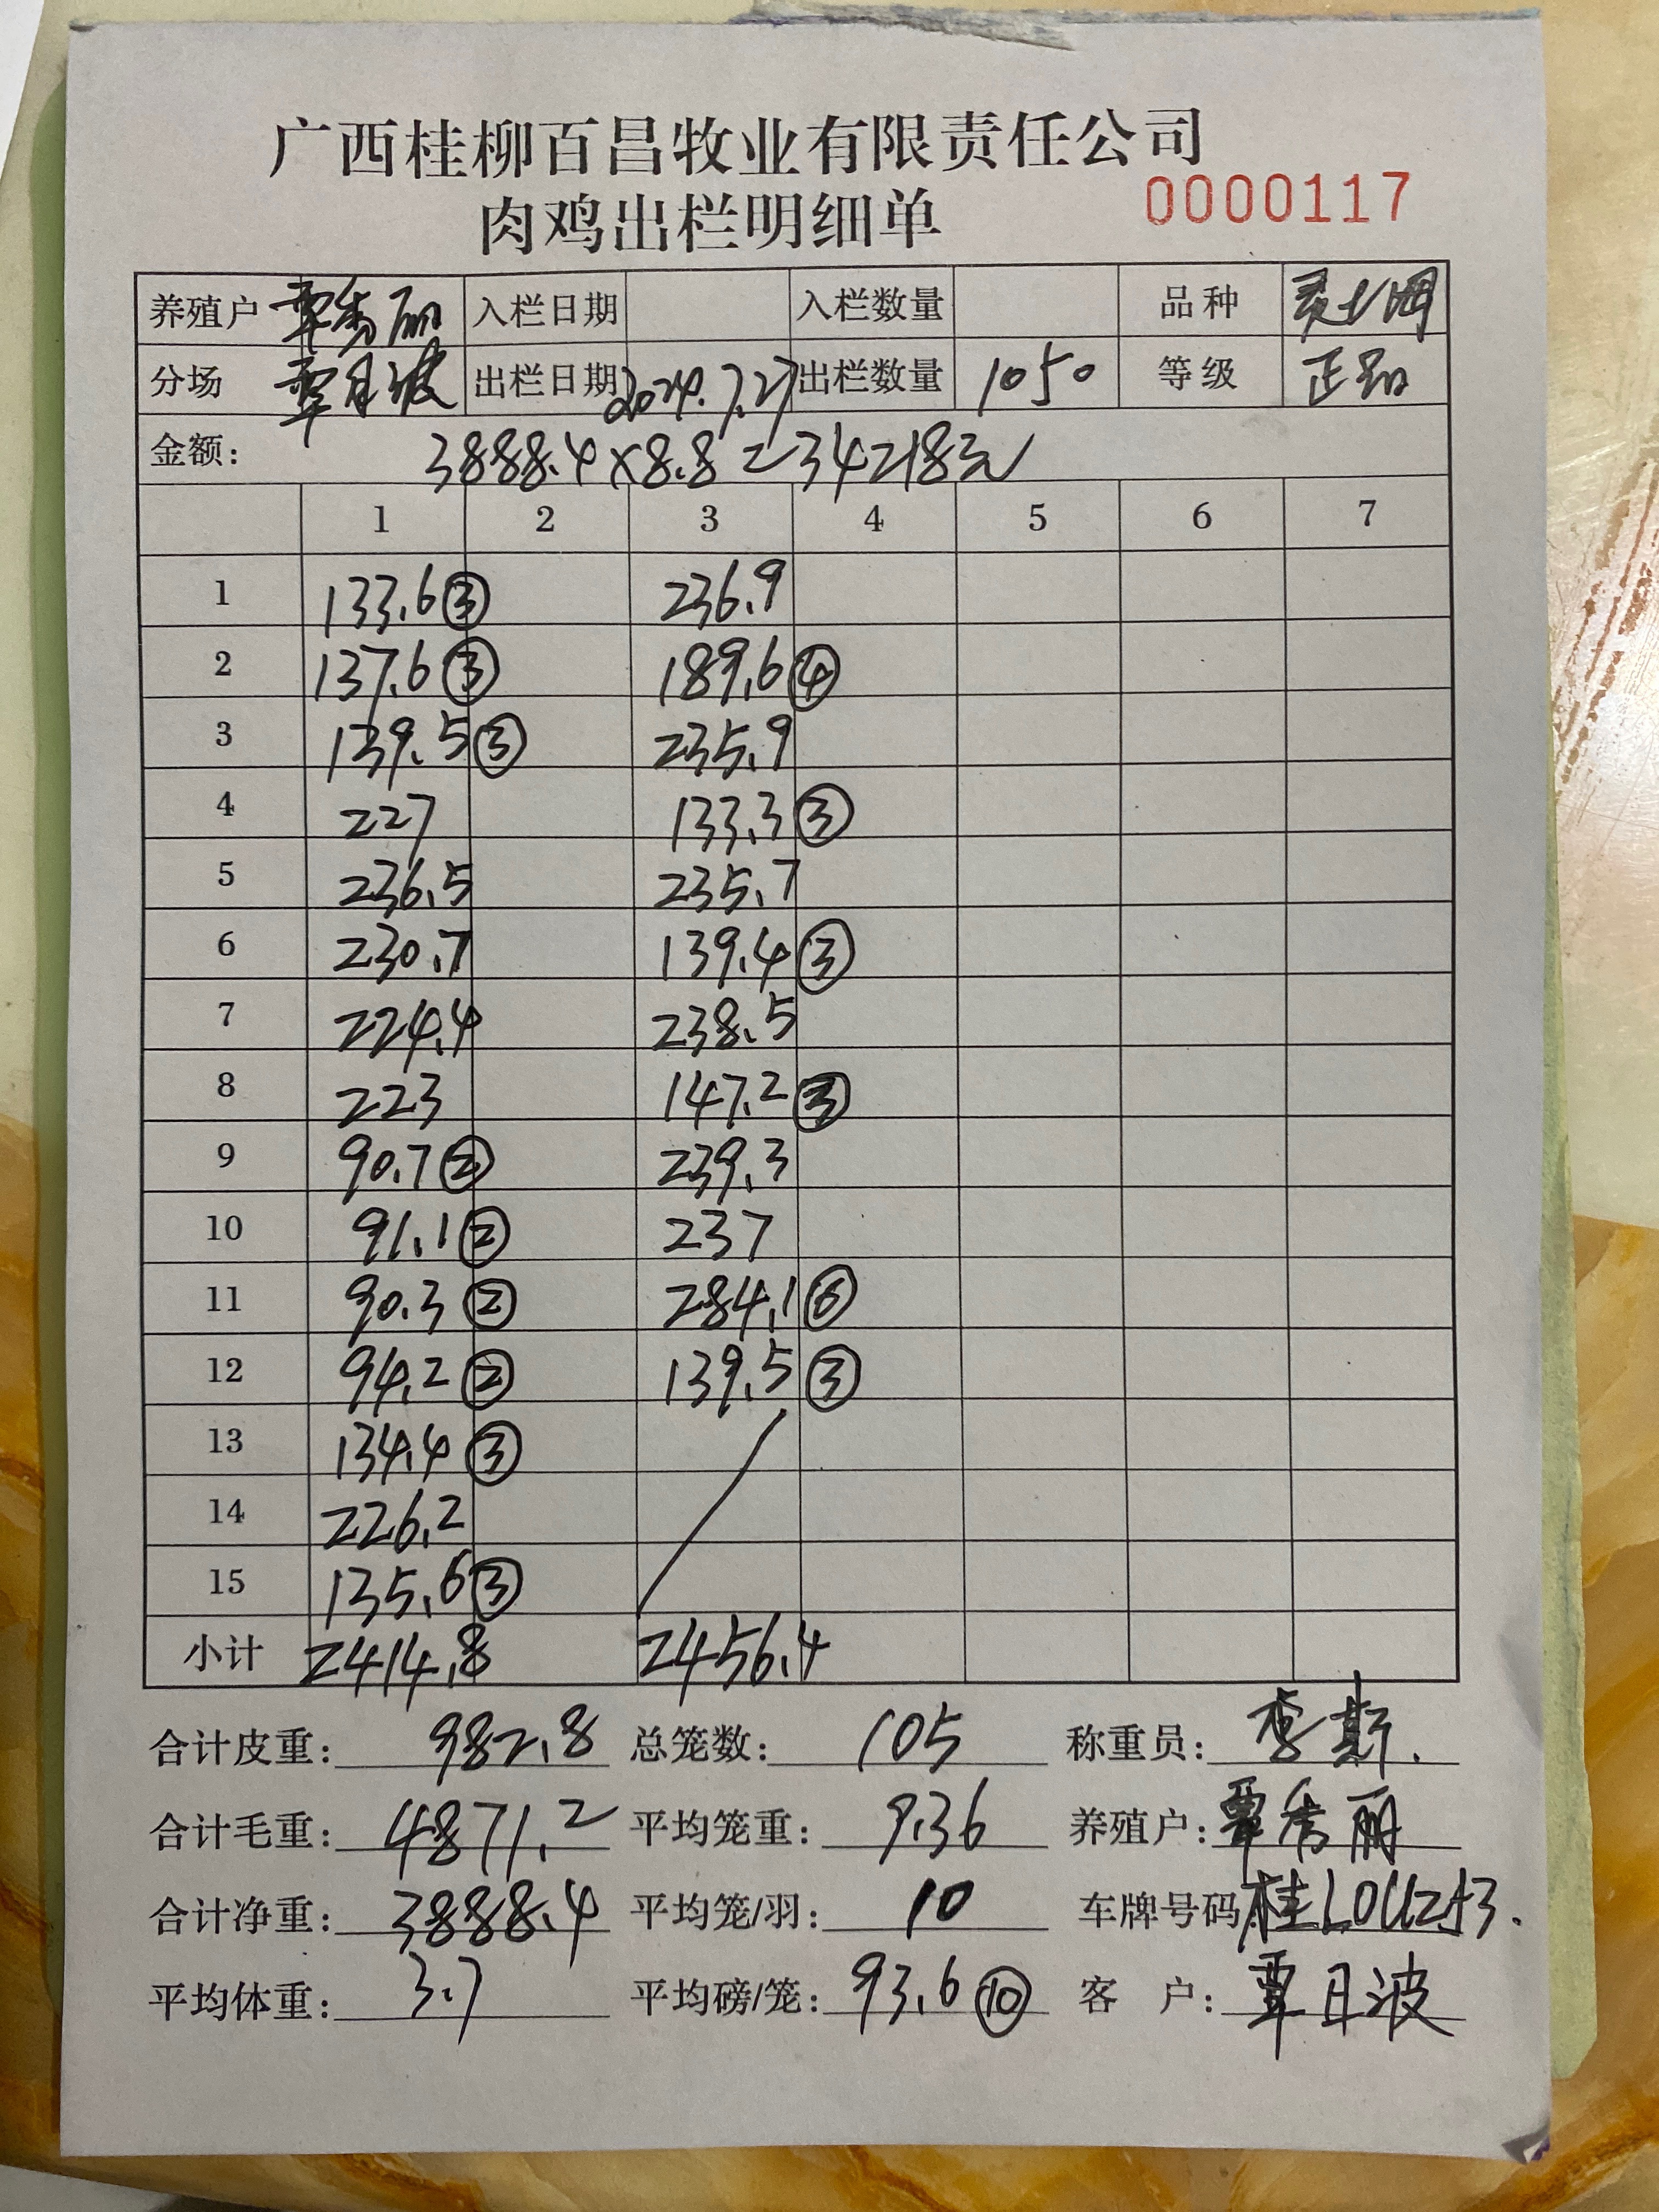 广西桂柳百昌牧业有限责任公司
肉鸡出栏明细单 0000117
养殖户 覃秀丽 入栏日期 入栏数量 品种
分场 覃月波 出栏日期 2024.7.27 出栏数量 1050 等级 正品
金额: 3888.4×8.8=34218元
1 2 3 4 5 6 7
1 133.6③ 236.9
2 137.6③ 189.6④
3 139.5③ 235.9
4 227 133.3③
5 236.5 235.7
6 230.7 139.4③
7 224.4 238.5
8 223 147.2③
9 90.7② 239.3
10 91.1② 237
11 90.3② 284.1⑥
12 94.2② 139.5③
13 134.4③
14 226.2
15 135.6③
小计 2414.8 2456.4
合计皮重: 982.8 总笼数: 105 称重员: 李斯.
合计毛重: 4871.2 平均笼重: 9.36 养殖户: 覃秀丽
合计净重: 3888.4 平均笼/羽: 10 车牌号码:
平均体重: 3.7 平均磅/笼: 93.6⑩ 客 户: 覃月波